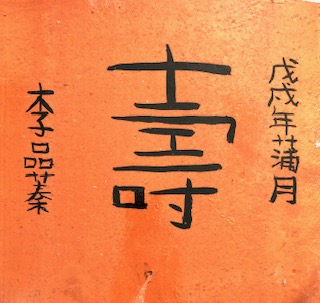 戊戌年蒲月
壽
李品蓁